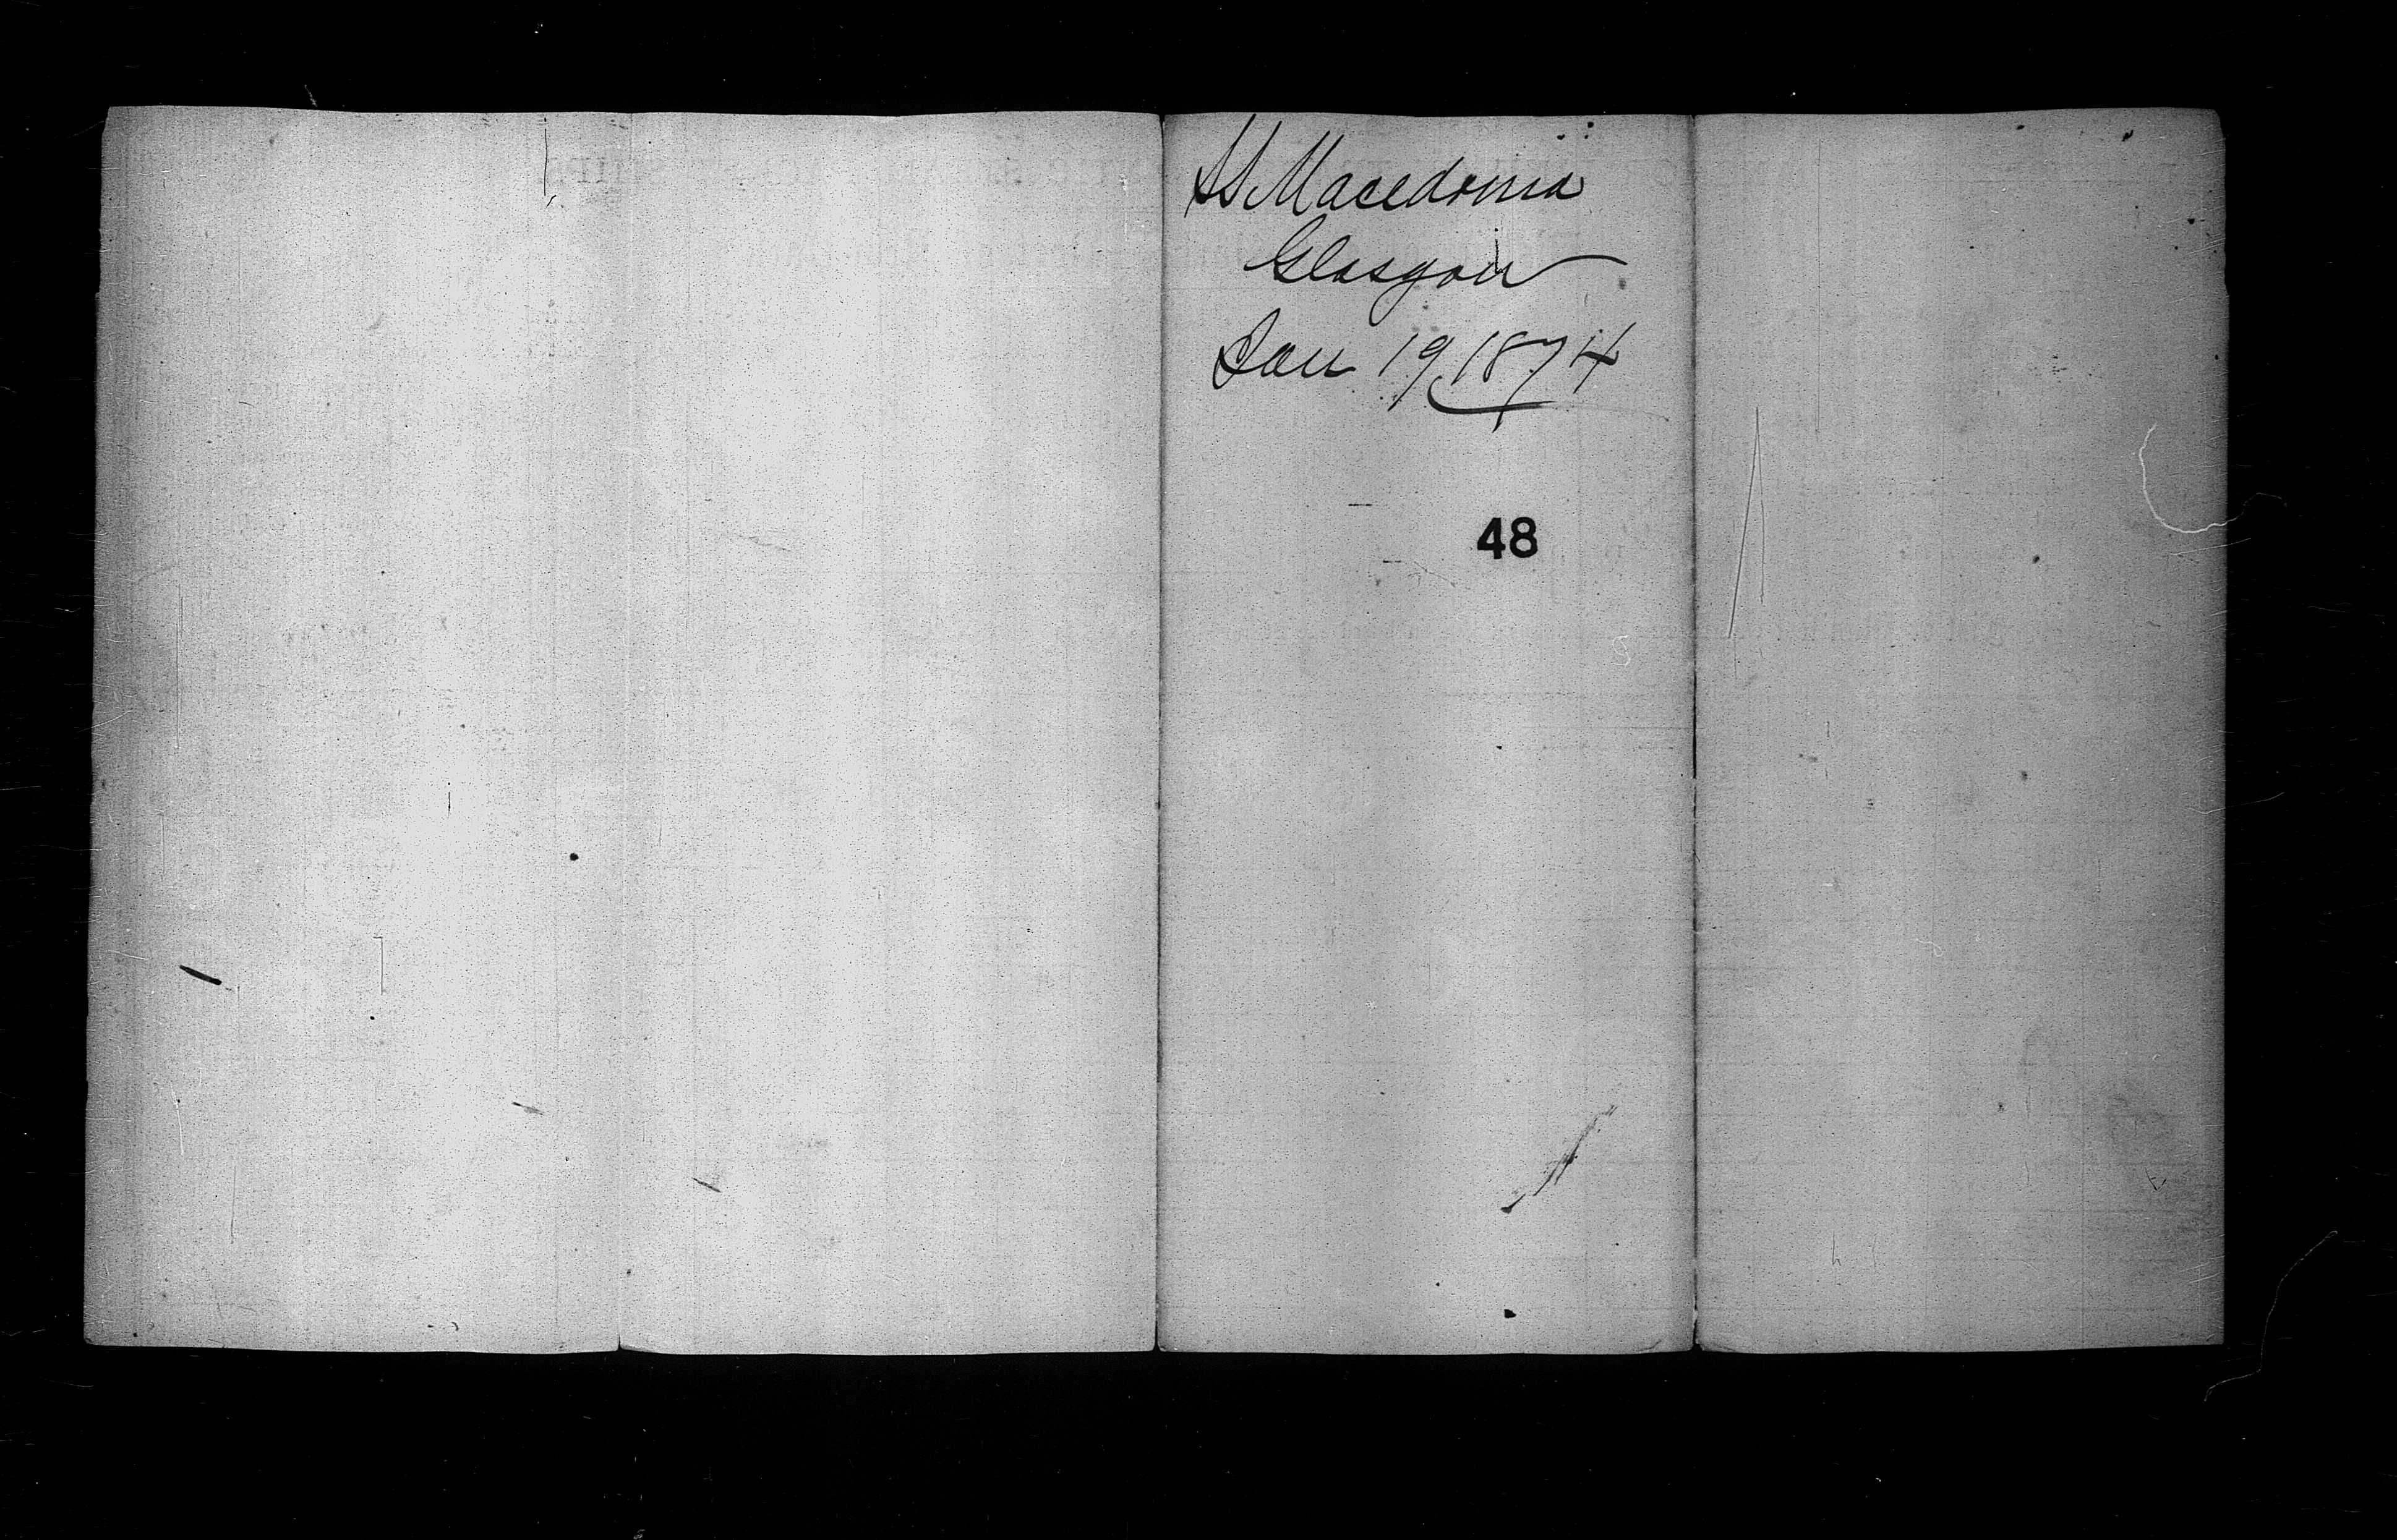 SS Macedonia
Glasgow
Jan 19 1874
48